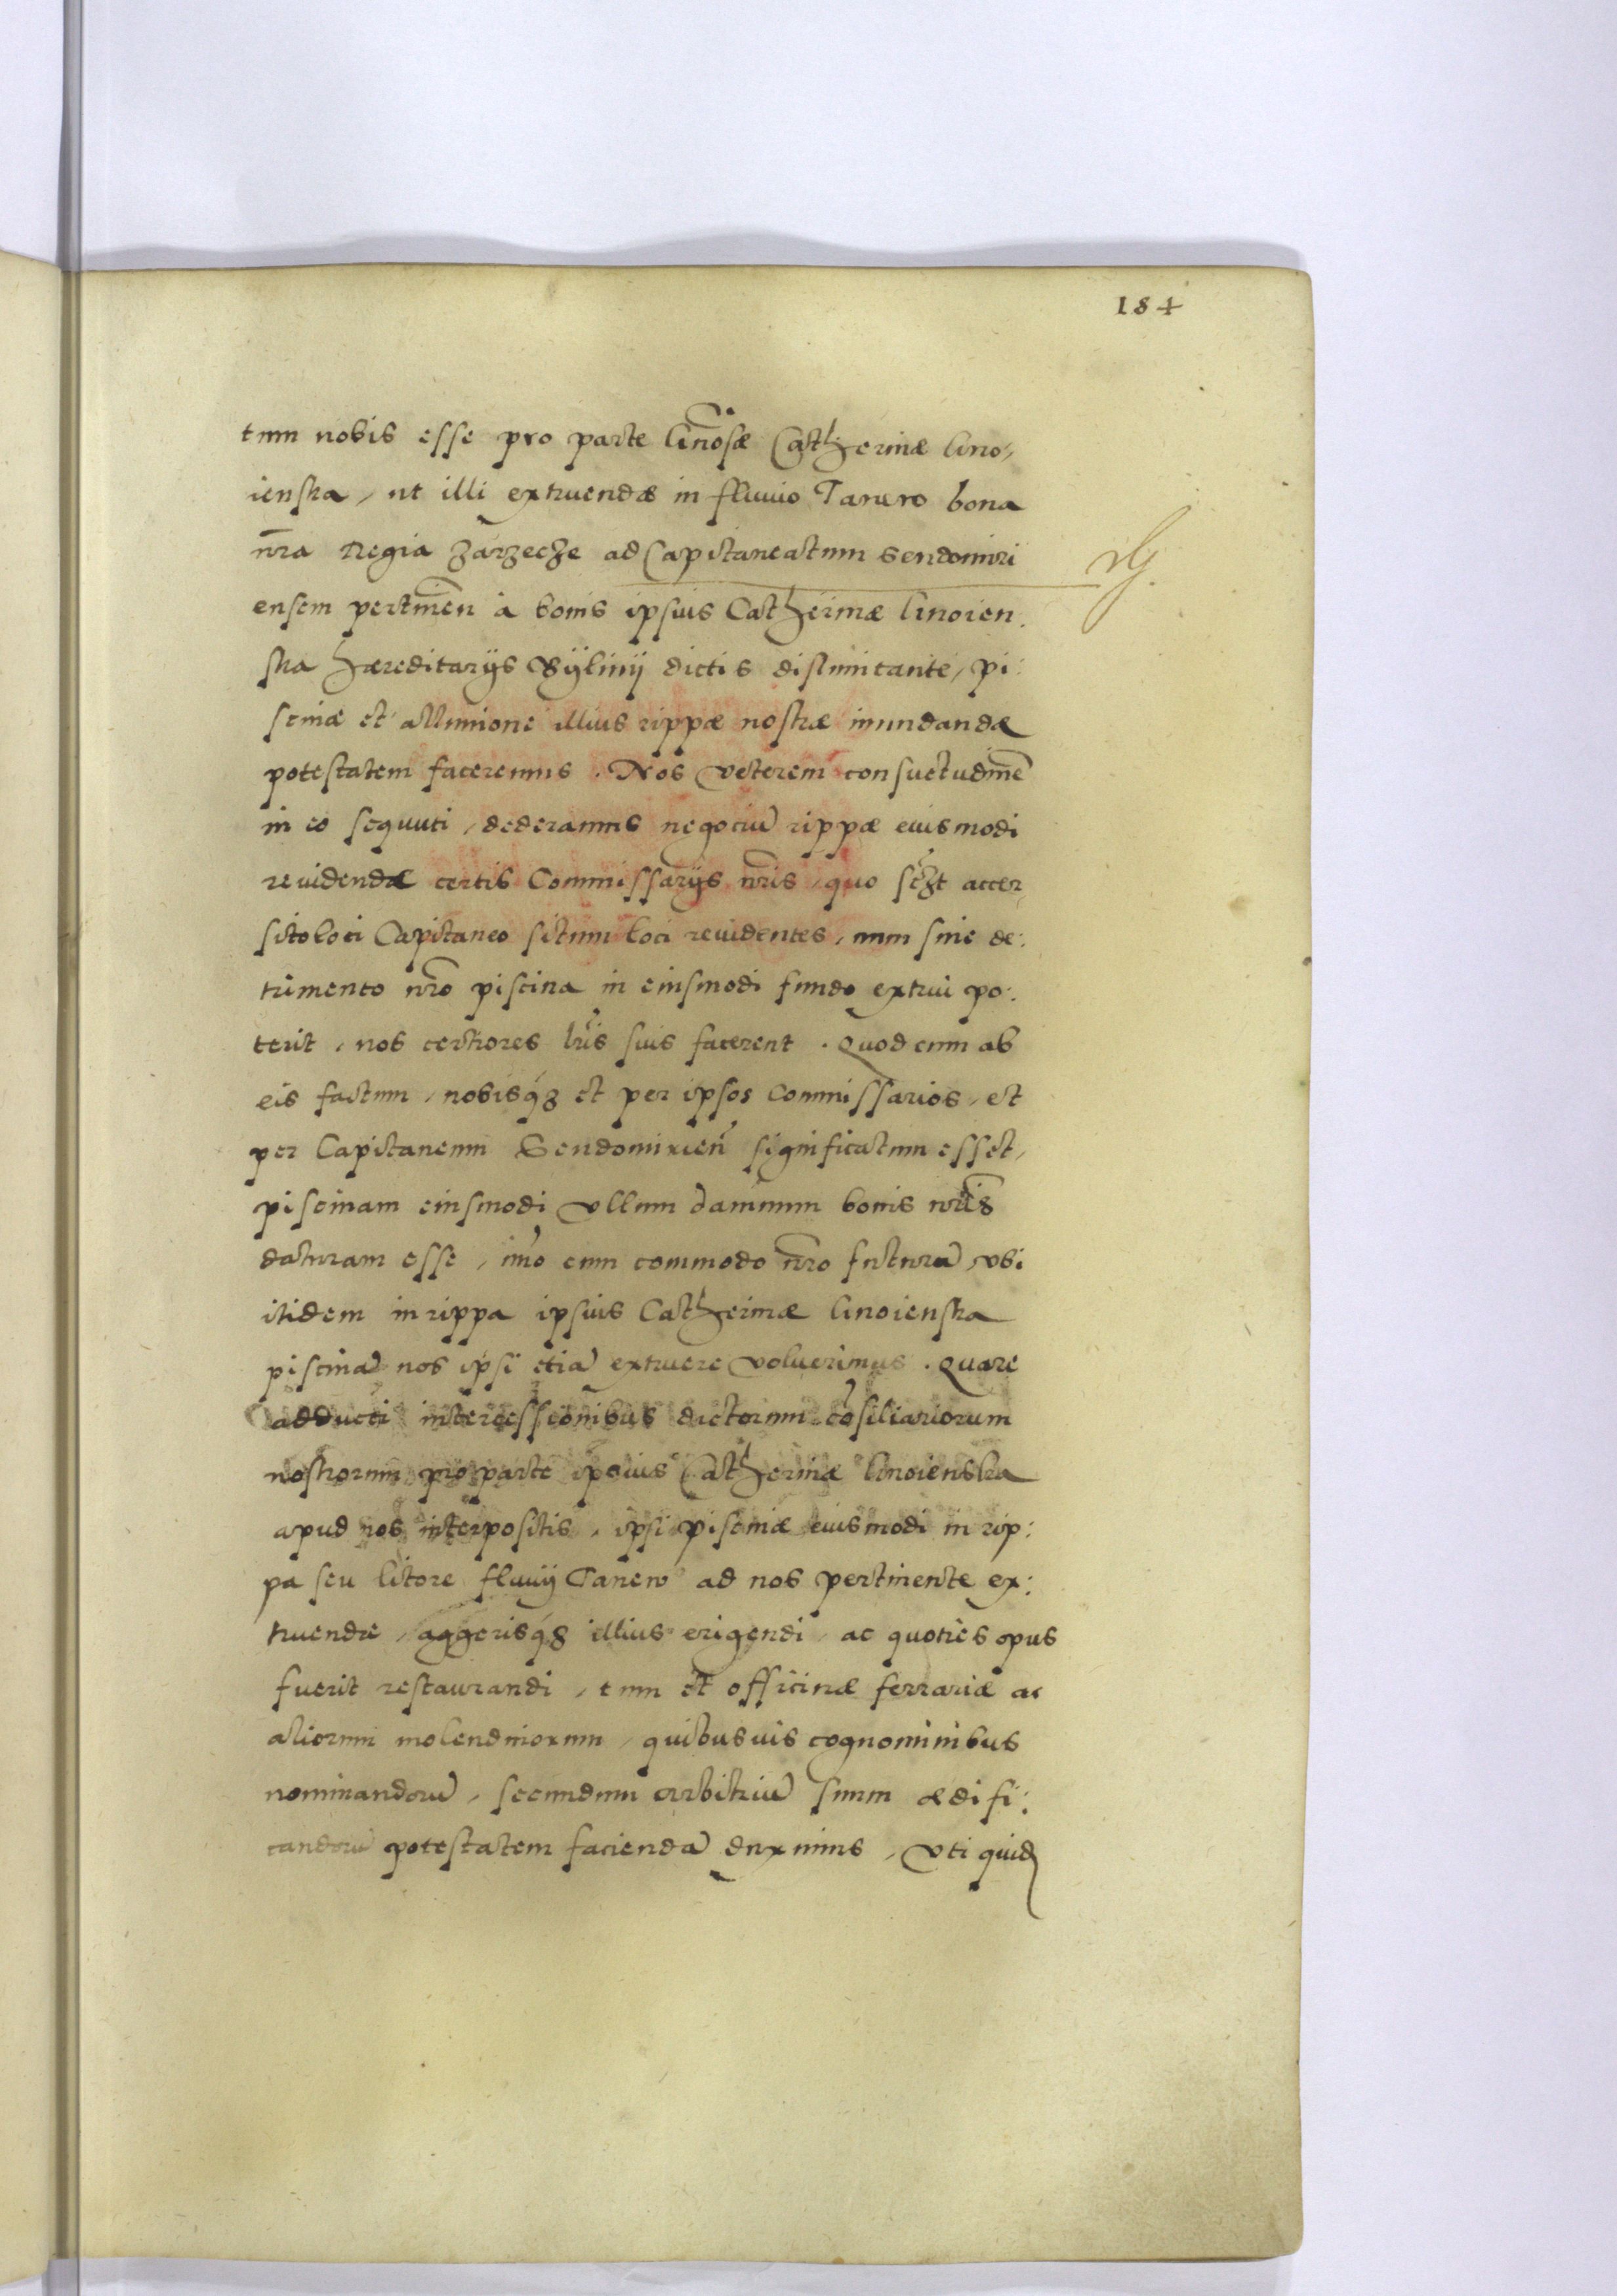 184
tum nobis esse pro parte Gñosæ Catherinæ Gno,
ienska, ut illi extruendæ in fluuio Tanwo bona
nr̃a Regia Zarzecze ad Capitaneatum Sendomiri
ensem pertinẽn à bonis ipsius Catherinæ Gnoien.
ska hæreditarijs dictis dislimitante, pi:
scinæ et alluuione illius rippæ nostræ inundandæ
potestatem faceremus. Nos veterem consuetudinẽ
in eo sequuti, dederamus negociũ rippæ eiusmodi
reuidendæ certis Commissarijs nr̃is, quo sczt accer,
sito loci Capitaneo situm loci reuidentes, num sine de:
trimento nr̃o piscina in eiusmodi fundo extrui po:
terit, nos certiores lr̃is suis facerent. Quod cum ab
eis factum, nobisq3 et per ipsos Commissarios, et
per Capitaneum Sendomirieñ significatum esset,
piscinam eiusmodi vllum damnum bonis nr̃is
daturam esse, imo cum commodo nr̃o futurã, vbi
itidem in rippa ipsius Catherinæ Gnoienska
piscinã nos ipsi etiã extruere voluerimus. Quare
adducti intercessionibus dictorum cõsiliariorum
nostrorum pro parte ipsius Catherinæ Gnoienska
apud nos interpositis, ipsi piscinæ eiusmodi in rip:
pa seu litore fluuij Tanew ad nos pertinente ex:
truendæ, aggerisq3 illius erigendi, ac quoties opus
fuerit restaurandi, tum et officinæ ferrariæ ac
aliorum molendinorum, quibusuis cognominibus
nominandorũ, secundum arbitriũ suum ædifi:
candorũ potestatem faciendã duximus, vti quid